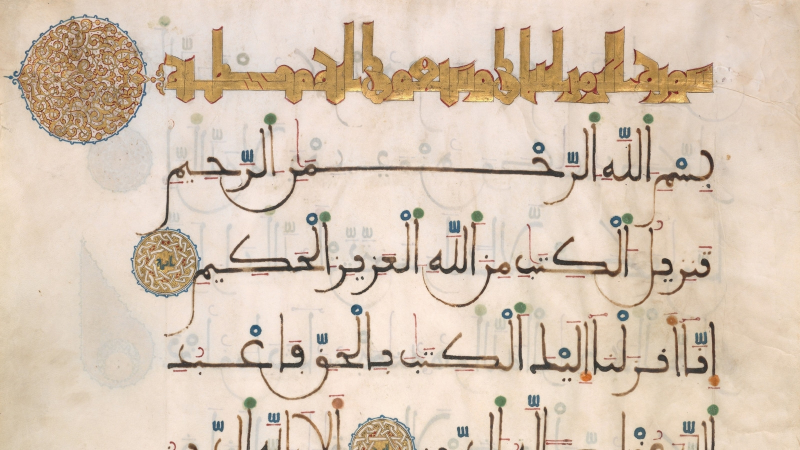 سورة الزمر اثنتان وسبعون اية مكية
بِسْمِ اللَّهِ الرَّحْمَنِ الرَّحِيمِ
تنزيل الكتب من الله العزيز الحكيم
إنا أنزلنا إليك الكتب بالحق فاعبد